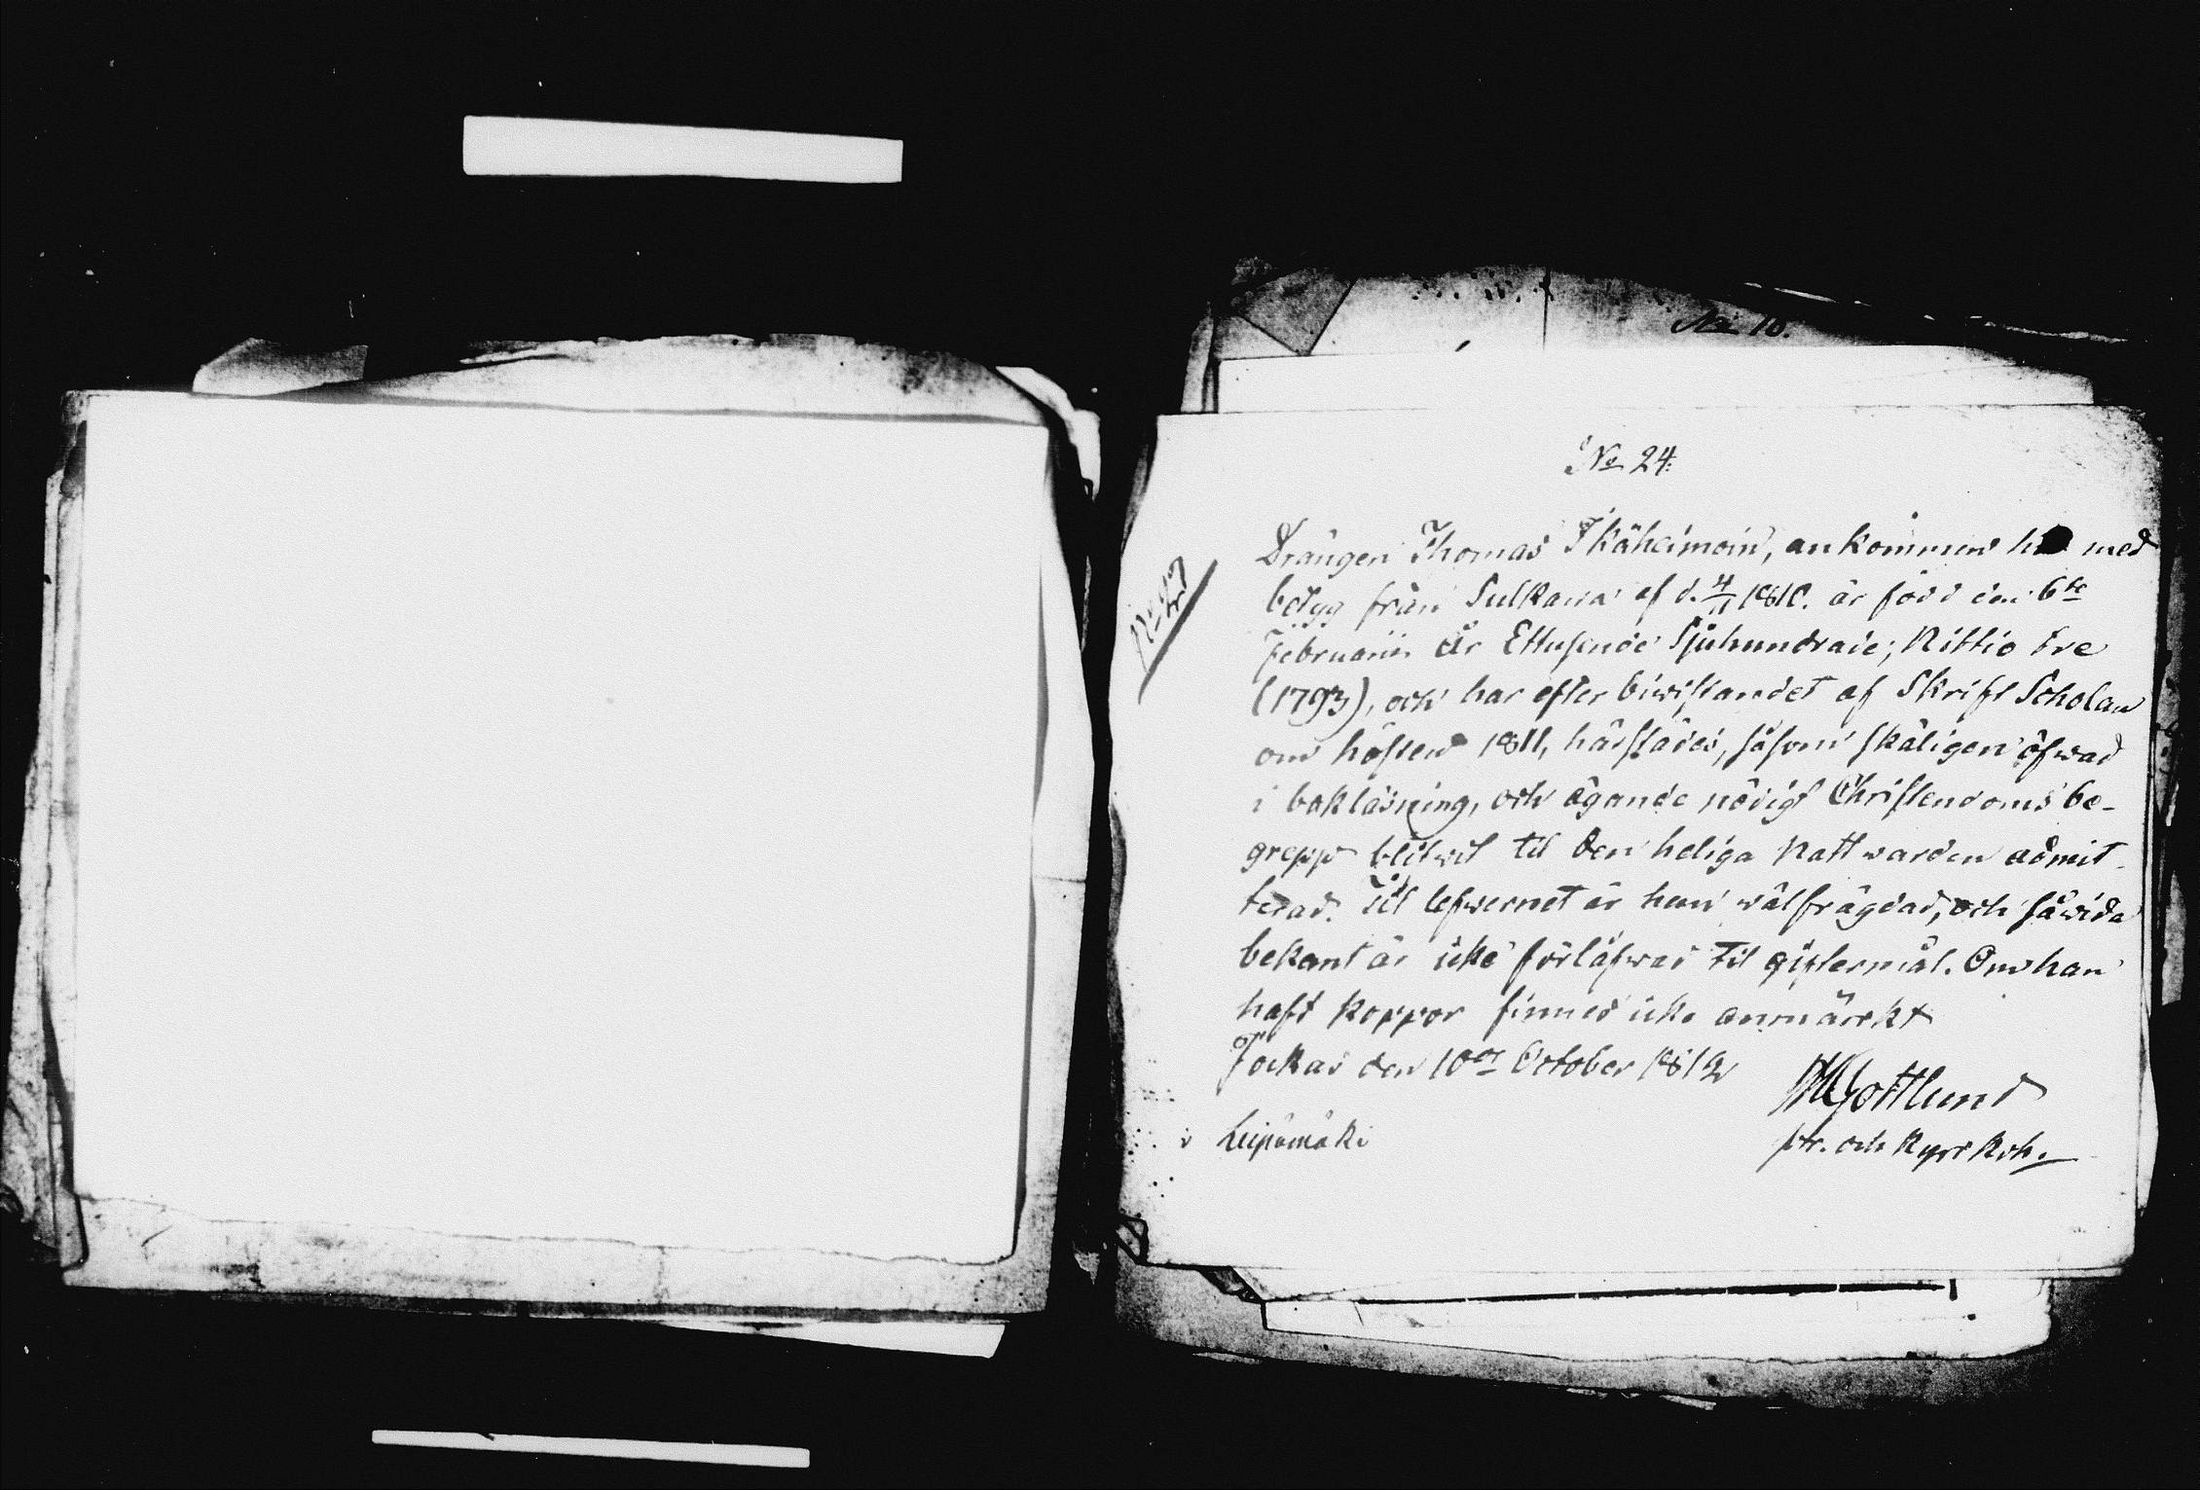 No 10.
No 24.
Drängen Thomas Ikäheimoin, ankommen hit med
betyg från Sulkawa af d. 4/11 1810. är född den 6te
Februarii År Ettusende Sjuhundrade, Nittio tre
(1793), och har efter biwistandet af Skrift Scholan
om hösten 1811, härstädes, såsom skäligen öfwad
i bokläsning, och ägande nödigt Christendoms be-
grepp blifwit til den heliga Nattwarden admit-
terad. Til lefwernet är han wälfrägdad, och såwida
bekant är icke förlåfwad til giftermål. Om han
haft koppor finnes icke anmärkt
Jockas den 10de October 1812
Gottlund
i Leipämäki
ptr. och Kyrkoh.